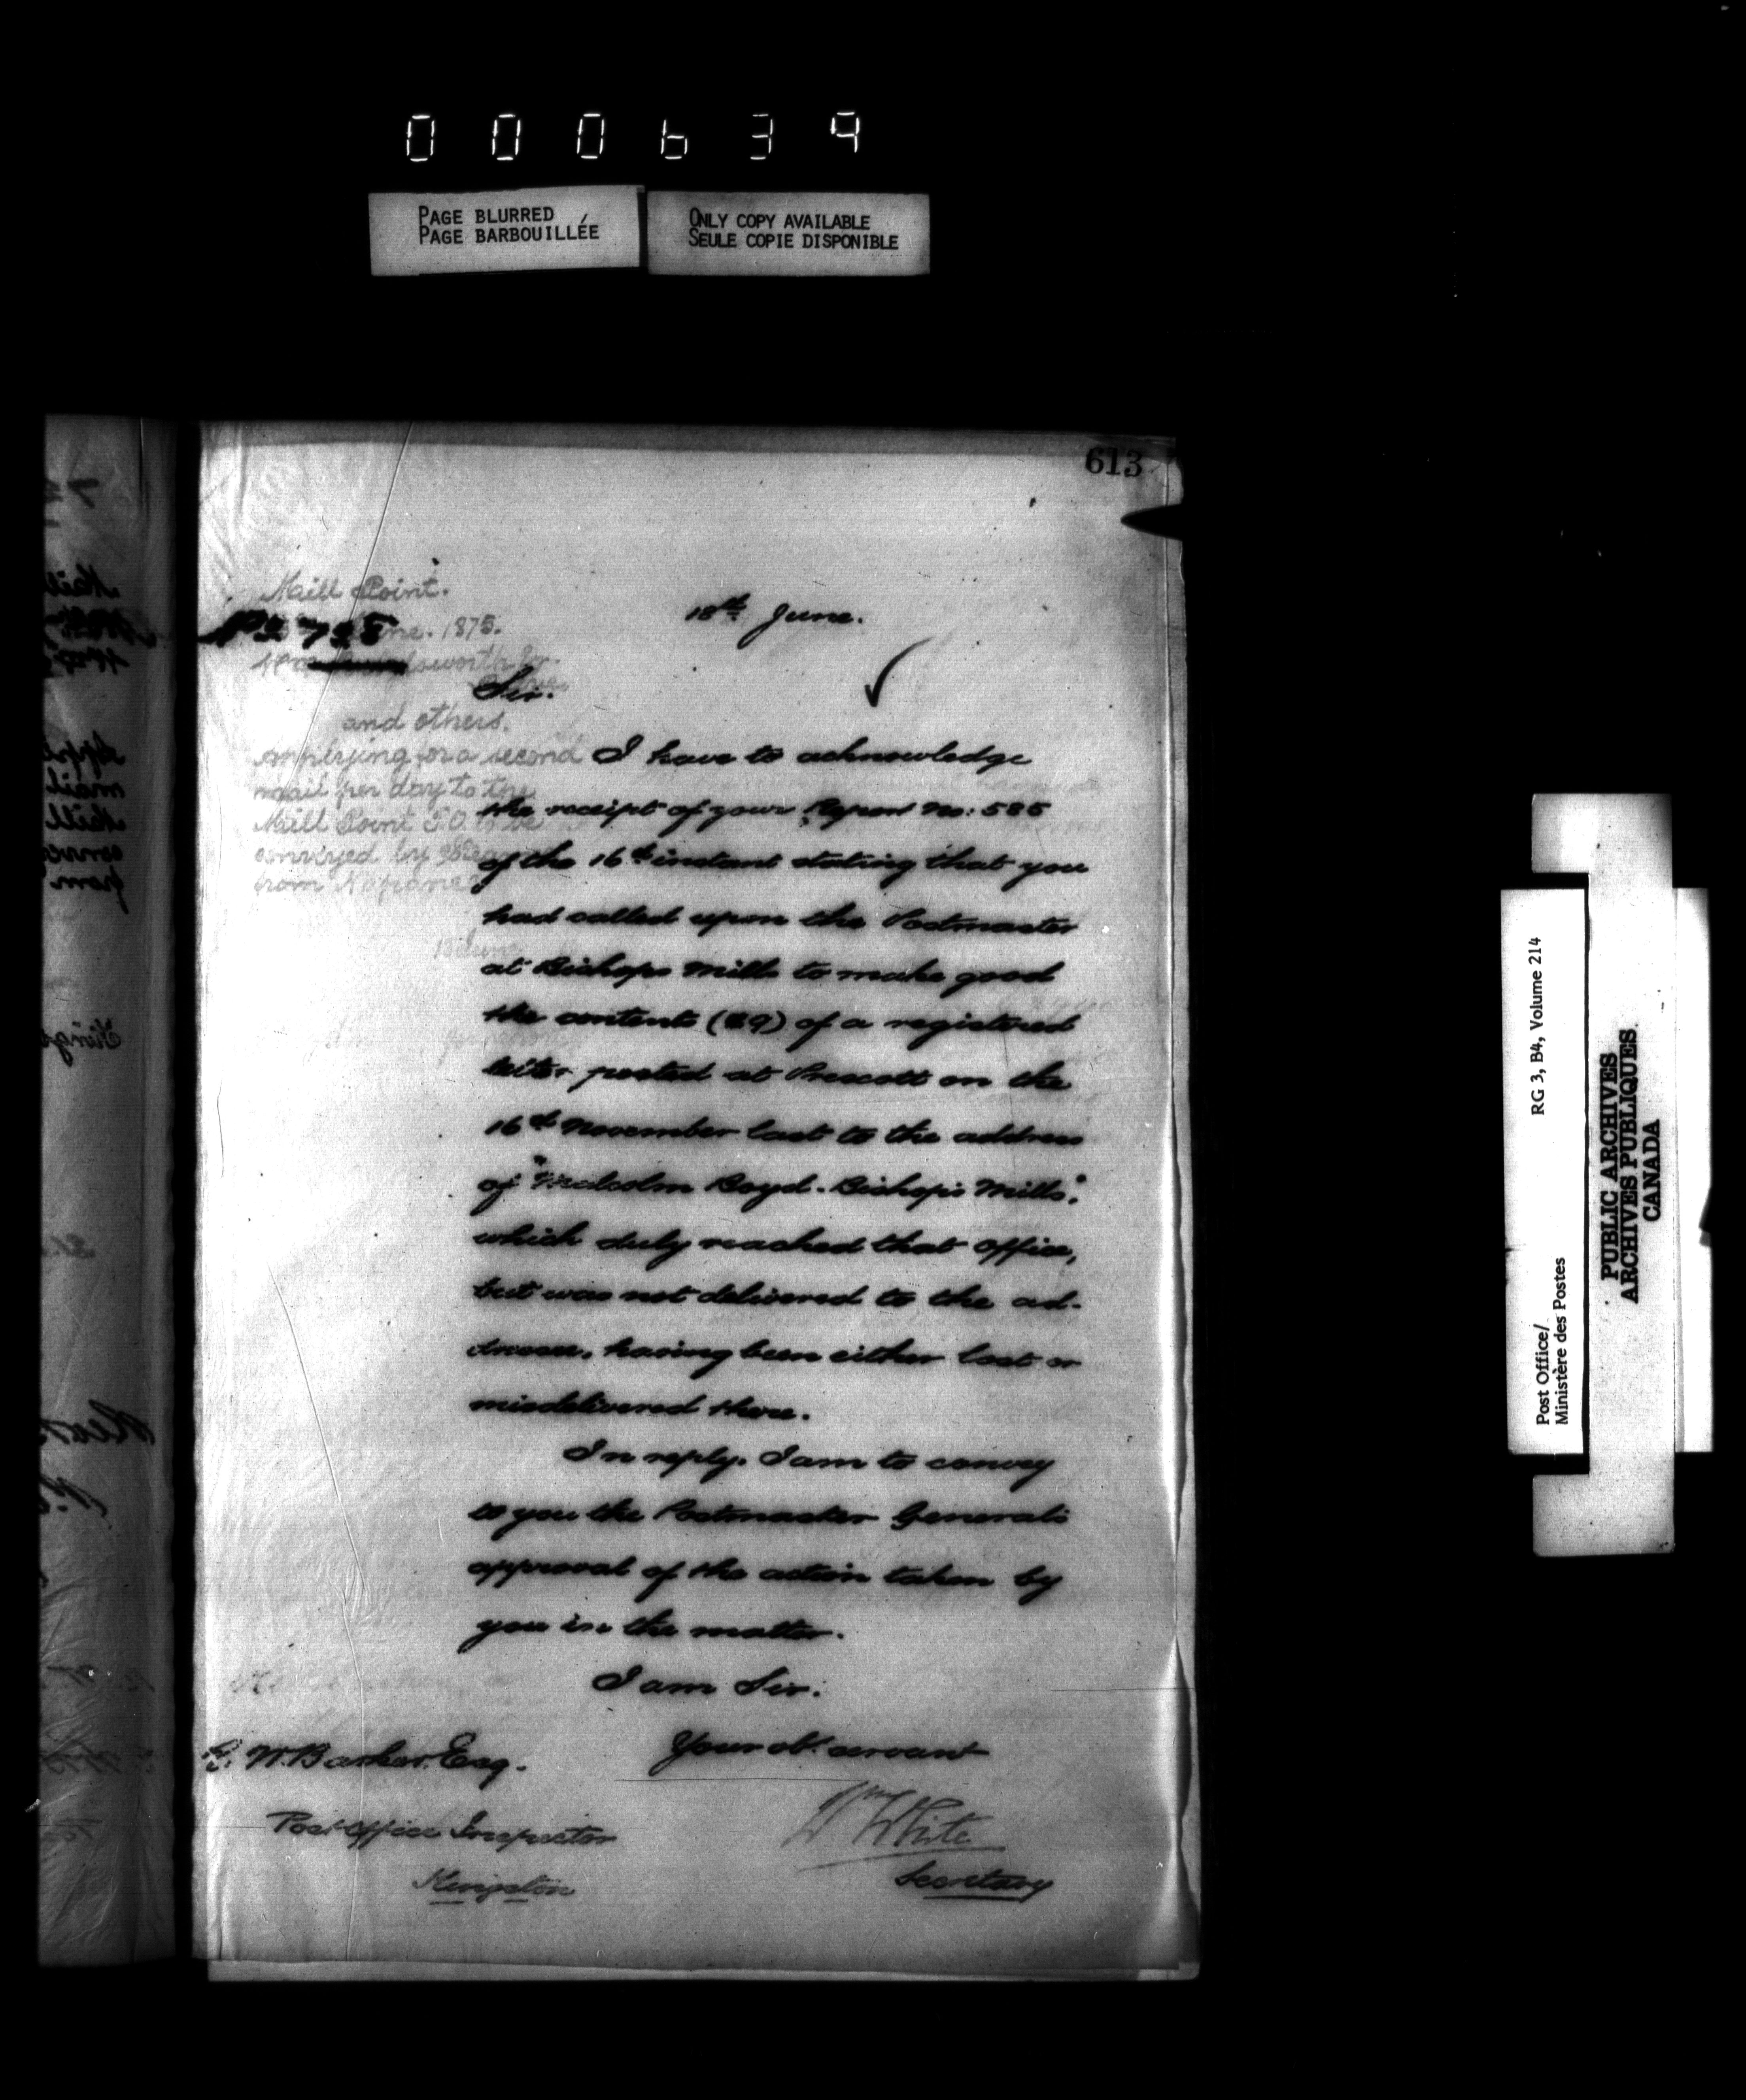 000639
PAGE BLURRED
PAGE BARBOUILLÉE
ONLY COPY AVAILABLE
SEULE COPIE DISPONIBLE
613
Mill Point.
June. 1875.
and others.
applying for a second
mail per day to the
Mill Point P.O. to be
conveyed by
from Napanee
18th June.
Sir.
I have to acknowledge
the receipt of your Report No: 585
of the 16th instant stating that you
had called upon the Postmaster
at Bishops Mills to make good
the contents ($9) of a registered
letter posted at Prescott on the
16th November last to the address
of "Malcolm Boyd. Bishop's Mills".
which duly reached that office,
but was not delivered to the ad-
dressee, having been either lost or
misdelivered there.
In reply. I am to convey
to you the Postmaster Generals
approval of the action taken by
you in the matter.
I am Sir.
Your obt. servant
Wm White
Secretary
W. Barker. Esq.
Post Office Inspector
Kingston
Post Office/
Ministère des Postes
RG 3, B4, Volume 214
PUBLIC ARCHIVES
ARCHIVES PUBLIQUES
CANADA